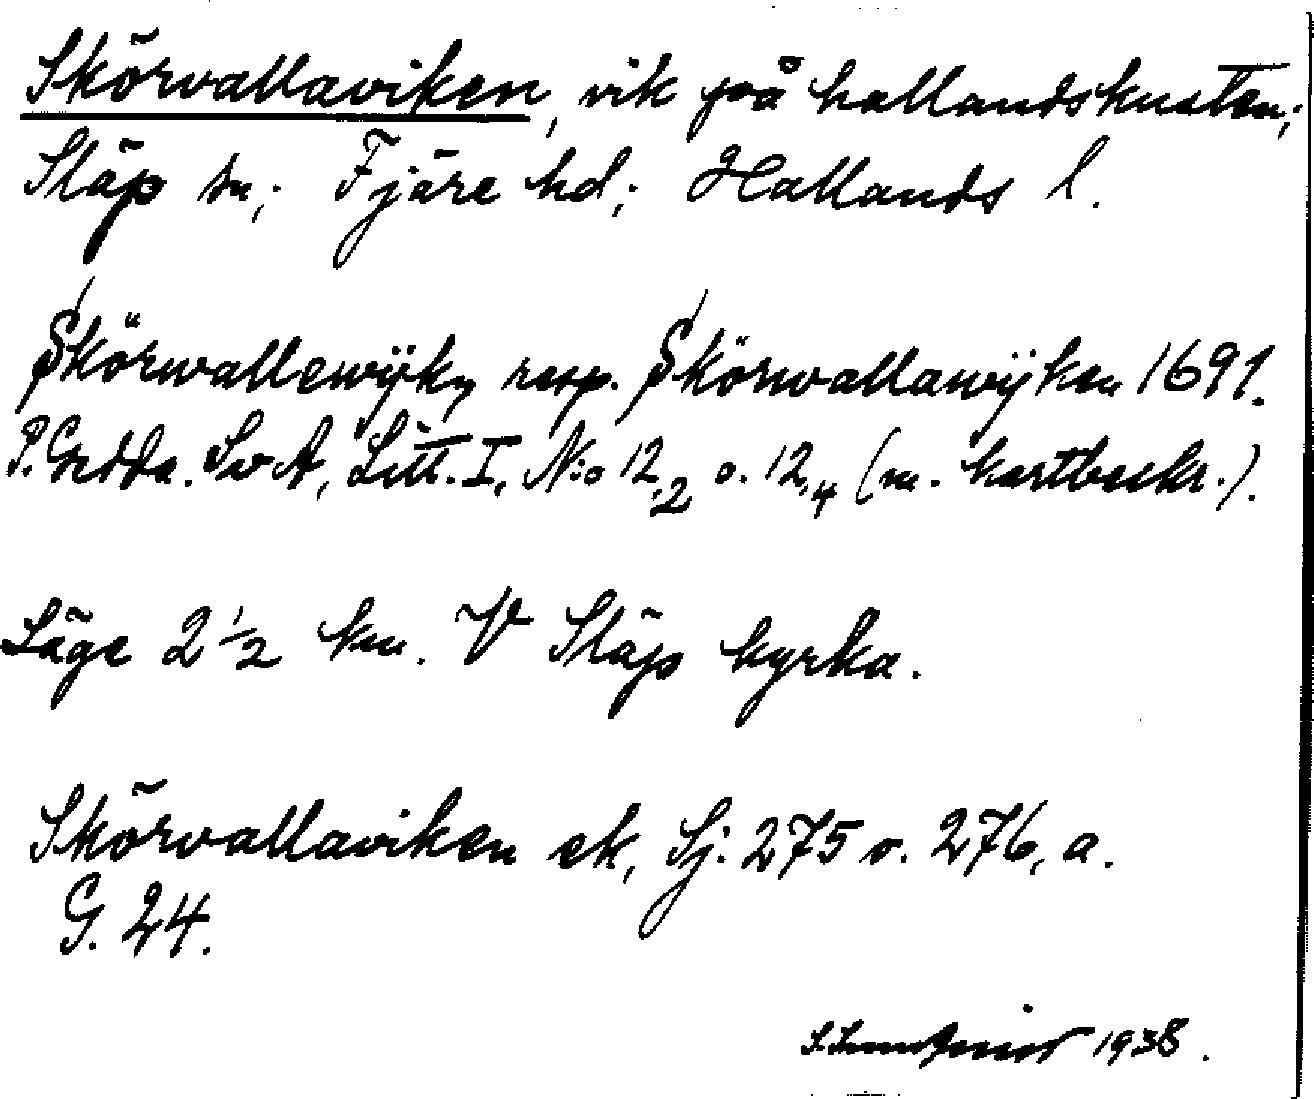 Skörvallaviken, vik på hallandskusten;
Släp sn; Fjäre hd; Hallands l.
Skörwallewijk, resp. Skörwallawijken 1691.
P. Gedda. SvA, Litt. I, N:o 12,2 o. 12,4 (m. kartbeskr.).
Läge 2 1/2 km. V Släp kyrka.
Skörvallaviken ek, Sj. 275 o. 276, a.
G. 24.
1938.